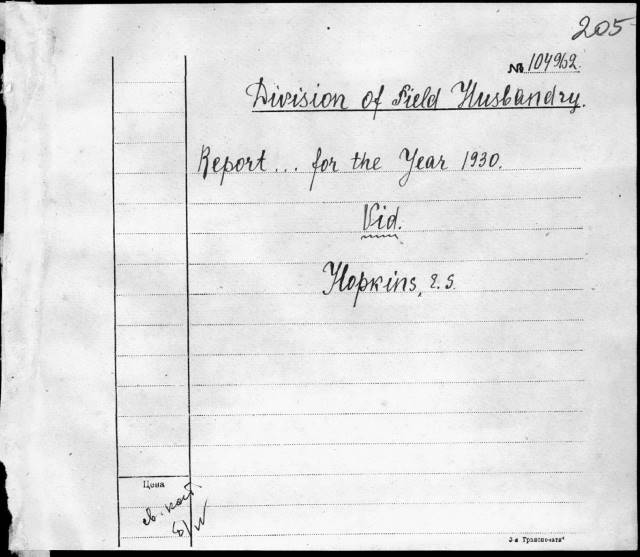 205
№ 104962.
Division of Field Husbandry.
Report... for the Year 1930.
Vid.
Hopkins, E. S.
Цена
3-я Транспечати"